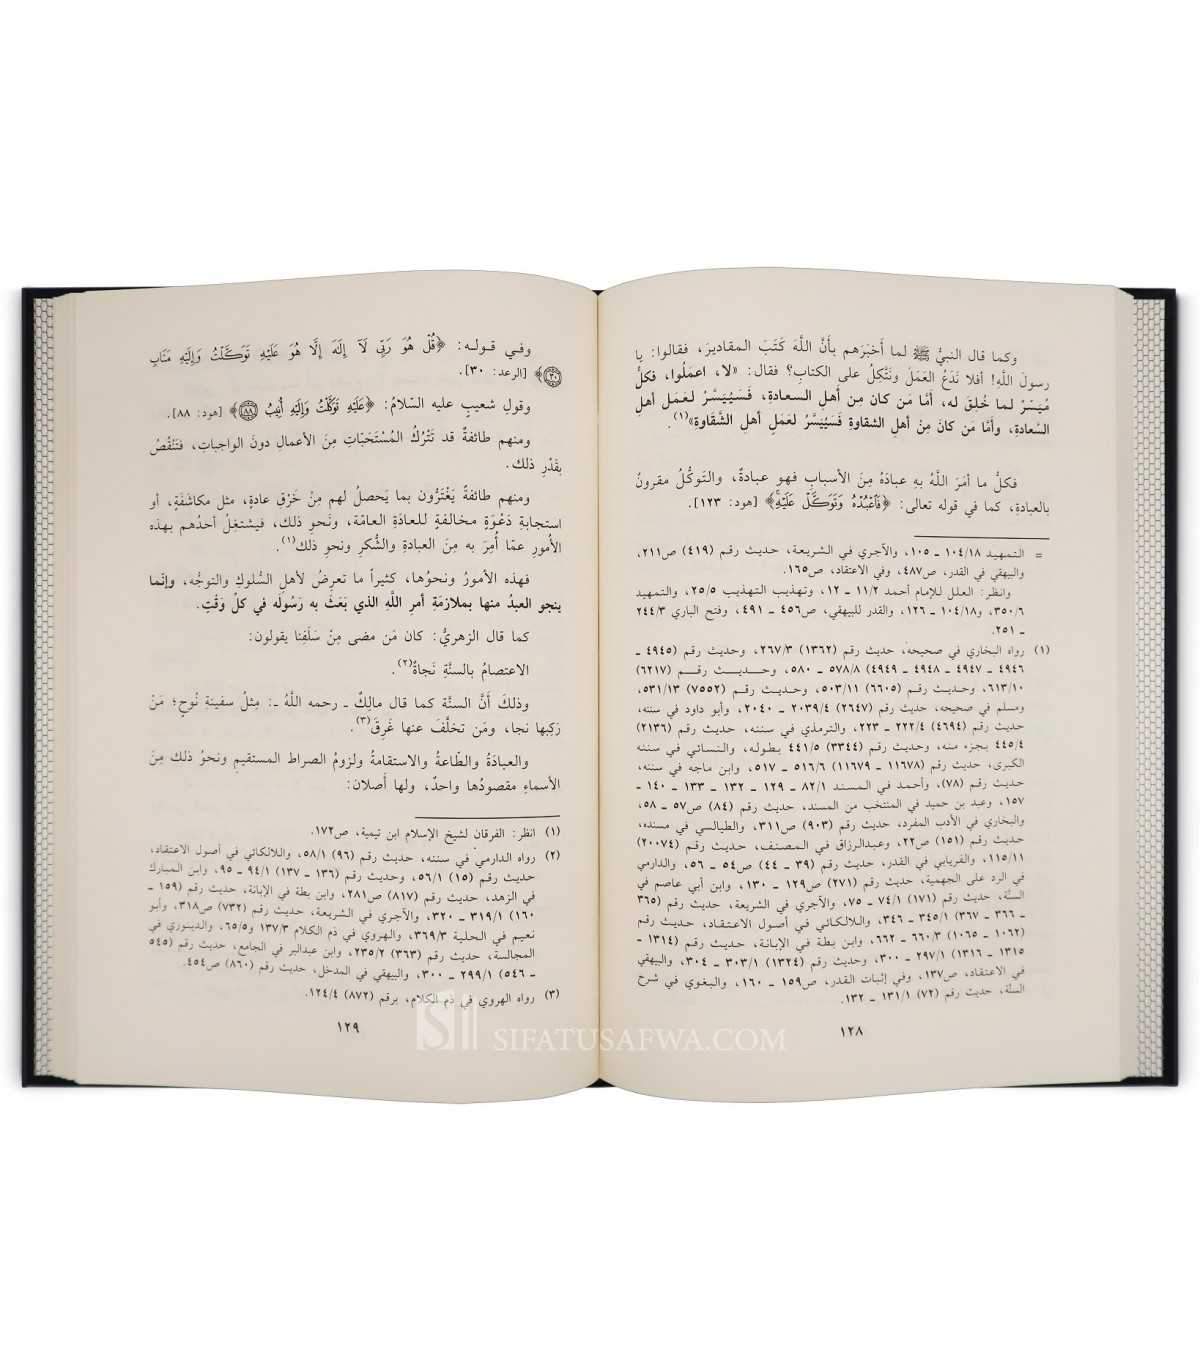 وكما قال النبيُّ ﷺ لما أَخبَرَهم بأنَّ اللَّهَ كَتَبَ المقاديرَ، فقالوا: يا
رسولَ اللَّهِ! أفلا نَدَعُ العَمَلَ ونَتَّكِلُ على الكتابِ؟ فقال: «لا، اعمَلُوا، فكلٌّ
مُيَسَّرٌ لما خُلِقَ له، أمَّا مَن كان مِن أهلِ السعادةِ، فَسَيُيَسَّرُ لعَمَلِ أهلِ
السَّعادةِ، وأمَّا مَن كانَ مِنْ أهلِ الشقاوةِ فَسَيُيَسَّرُ لعَمَلِ أهلِ الشَّقَاوةِ»(١).
فكلُّ ما أمَرَ اللَّهُ بهِ عبادَهُ مِنَ الأسبابِ فهو عبادةٌ، والتَوكُّلُ مقرونٌ
بالعبادةِ، كما في قوله تعالى: ﴿فَاعْبُدْهُ وَتَوَكَّلْ عَلَيْهِ﴾ [هود: ١٢٣].
= التمهيد ١٠٤/١٨ ـ ١٠٥، والآجري في الشريعة، حديث رقم (٤١٩) ص٢١١،
والبيهقي في القدر، ص٤٨٧، وفي الاعتقاد، ص١٦٥.
وانظر: العلل للإمام أحمد ١١/٢ ـ ١٢، وتهذيب التهذيب ٢٥/٥، والتمهيد
٣٥٠/٦، و١٠٤/١٨ ـ ١٢٦، والقدر للبيهقي، ص٤٥٦ ـ ٤٩١، وفتح الباري ٢٤٤/٣
ـ ٢٥١.
(١) رواه البخاري في صحيحه، حديث رقم (١٣٦٢) ٢٦٧/٣، وحديث رقم (٤٩٤٥ ـ
٤٩٤٦ ـ ٤٩٤٧ ـ ٤٩٤٨ ـ ٤٩٤٩) ٥٧٨/٨ ـ ٥٨٠، وحديث رقم (٦٢١٧)
٦١٣/١٠، وحديث رقم (٦٦٠٥) ٥٠٣/١١، وحديث رقم (٧٥٥٢) ٥٣١/١٣،
ومسلم في صحيحه، حديث رقم (٢٦٤٧) ٢٠٣٩/٤ ـ ٢٠٤٠، وأبو داود في سننه،
حديث رقم (٤٦٩٤) ٢٢٢/٤ ـ ٢٢٣، والترمذي في سننه، حديث رقم (٢١٣٦)
٤٤٥/٤ بجزء منه، وحديث رقم (٣٣٤٤) ٤٤١/٥ بطوله، والنسائي في سننه
الكبرى، حديث رقم (١١٦٧٨ ـ ١١٦٧٩) ٥١٦/٦ ـ ٥١٧، وابن ماجه في سننه،
حديث رقم (٧٨)، وأحمد في المسند ٨٢/١ ـ ١٢٩ ـ ١٣٢ ـ ١٣٣ ـ ١٤٠ ـ
١٥٧، وعبد بن حميد في المنتخب من المسند، حديث رقم (٨٤) ص٥٧ ـ ٥٨،
والبخاري في الأدب المفرد، حديث رقم (٩٠٣) ص٣١١، والطيالسي في مسنده،
حديث رقم (١٥١) ص٢٢، وعبدالرزاق في المصنف، حديث رقم (٢٠٠٧٤)
١١٥/١١، والفريابي في القدر، حديث رقم (٣٩ ـ ٤٤) ص٥٤ ـ ٥٦، والدارمي
في الرد على الجهمية، حديث رقم (٢٧١) ص١٢٩ ـ ١٣٠، وابن أبي عاصم في
السنَّة، حديث رقم (١٧١) ٧٤/١ ـ ٧٥، والآجري في الشريعة، حديث رقم (٣٦٥
ـ ٣٦٦ ـ ٣٦٧) ٣٤٥/١ ـ ٣٤٦، واللالكائي في أصول الاعتقاد، حديث رقم
(١٠٦٢ ـ ١٠٦٥) ٦٦٠/٣ ـ ٦٦٢، وابن بطة في الإبانة، حديث رقم (١٣١٤ ـ
١٣١٥ ـ ١٣١٦) ٢٩٧/١ ـ ٣٠٠، وحديث رقم (١٣٢٤) ٣٠٣/١ ـ ٣٠٤، والبيهقي
في الاعتقاد، ص١٣٧، وفي إثبات القدر، ص١٥٩ ـ ١٦٠، والبغوي في شرح
السنَّة، حديث رقم (٧٢) ١٣١/١ ـ ١٣٢.
١٢٨
وفي قوله: ﴿قُلْ هُوَ رَبِّي لَآ إِلَهَ إِلَّا هُوَ عَلَيْهِ تَوَكَّلْتُ وَإِلَيْهِ مَتَابِ
﴿٣٠﴾﴾ [الرعد: ٣٠].
وقولِ شعيبٍ عليه السّلامُ: ﴿عَلَيْهِ تَوَكَّلْتُ وَإِلَيْهِ أُنِيبُ ﴿٨٨﴾﴾ [هود: ٨٨].
ومنهم طائفةٌ قد تَتْرُكُ المُسْتَحَبّاتِ مِنَ الأعمالِ دونَ الواجباتِ، فتَنْقُصُ
بقَدْرِ ذلك.
ومنهم طائفةٌ يَغْتَرُّون بما يَحصلُ لهم مِنْ خَرْقِ عادةٍ، مثل مكاشَفَةٍ، أو
استجابةِ دَعْوَةٍ مخالفةٍ للعادَةِ العامّة، ونَحوِ ذلك، فيشتغلُ أحدُهم بهذه
الأُمورِ عمّا أُمِرَ به مِنَ العبادةِ والشُّكرِ ونحوِ ذلك(١).
فهذه الأمورُ ونحوُها، كثيراً ما تعرِضُ لأهلِ السُّلوكِ والتوجُّه، وإنّما
ينجو العبدُ منها بملازمَةِ أمرِ اللَّهِ الذي بَعَثَ به رَسُولَه في كلِّ وَقْتٍ.
كما قال الزهريُّ: كان مَن مضى مِنْ سَلَفِنا يقولون:
الاعتصامُ بالسنَّةِ نَجاةٌ(٢).
وذلكَ أنَّ السنَّة كما قال مالِكٌ ـ رحمه اللَّهُ ـ: مِثلُ سفينةِ نُوحٍ؛ مَنْ
رَكِبها نجا، ومَن تخلَّفَ عنها غَرِقَ(٣).
والعبادَةُ والطّاعةُ والاستقامةُ ولزومُ الصراط المستقيمِ ونحوُ ذلك مِنَ
الأسماءِ مقصودُها واحدٌ، ولها أصلان:
(١) انظر: الفرقان لشيخ الإسلام ابن تيمية، ص١٧٢.
(٢) رواه الدارمي في سننه، حديث رقم (٩٦) ٥٨/١، واللالكائي في أصول الاعتقاد،
حديث رقم (١٥) ٥٦/١، وحديث رقم (١٣٦ ـ ١٣٧) ٩٤/١ ـ ٩٥، وابن المبارك
في الزهد، حديث رقم (٨١٧) ص٢٨١، وابن بطة في الإبانة، حديث رقم (١٥٩ ـ
١٦٠) ٣١٩/١ ـ ٣٢٠، والآجري في الشريعة، حديث رقم (٧٣٢) ص٣١٨، وأبو
نعيم في الحلية ٣٦٩/٣، والهروي في ذم الكلام ١٣٧/٣ و٦٥/٥، والدينوري في
المجالسة، حديث رقم (٣٦٣) ٢٣٥/٢، وابن عبدالبر في الجامع، حديث رقم (٥٤٥
ـ ٥٤٦) ٢٩٩/١ ـ ٣٠٠، والبيهقي في المدخل، حديث رقم (٨٦٠) ص٤٥٤.
(٣) رواه الهروي في ذم الكلام، برقم (٨٧٢) ١٢٤/٤.
١٢٩
SIFATUSAFWA.COM